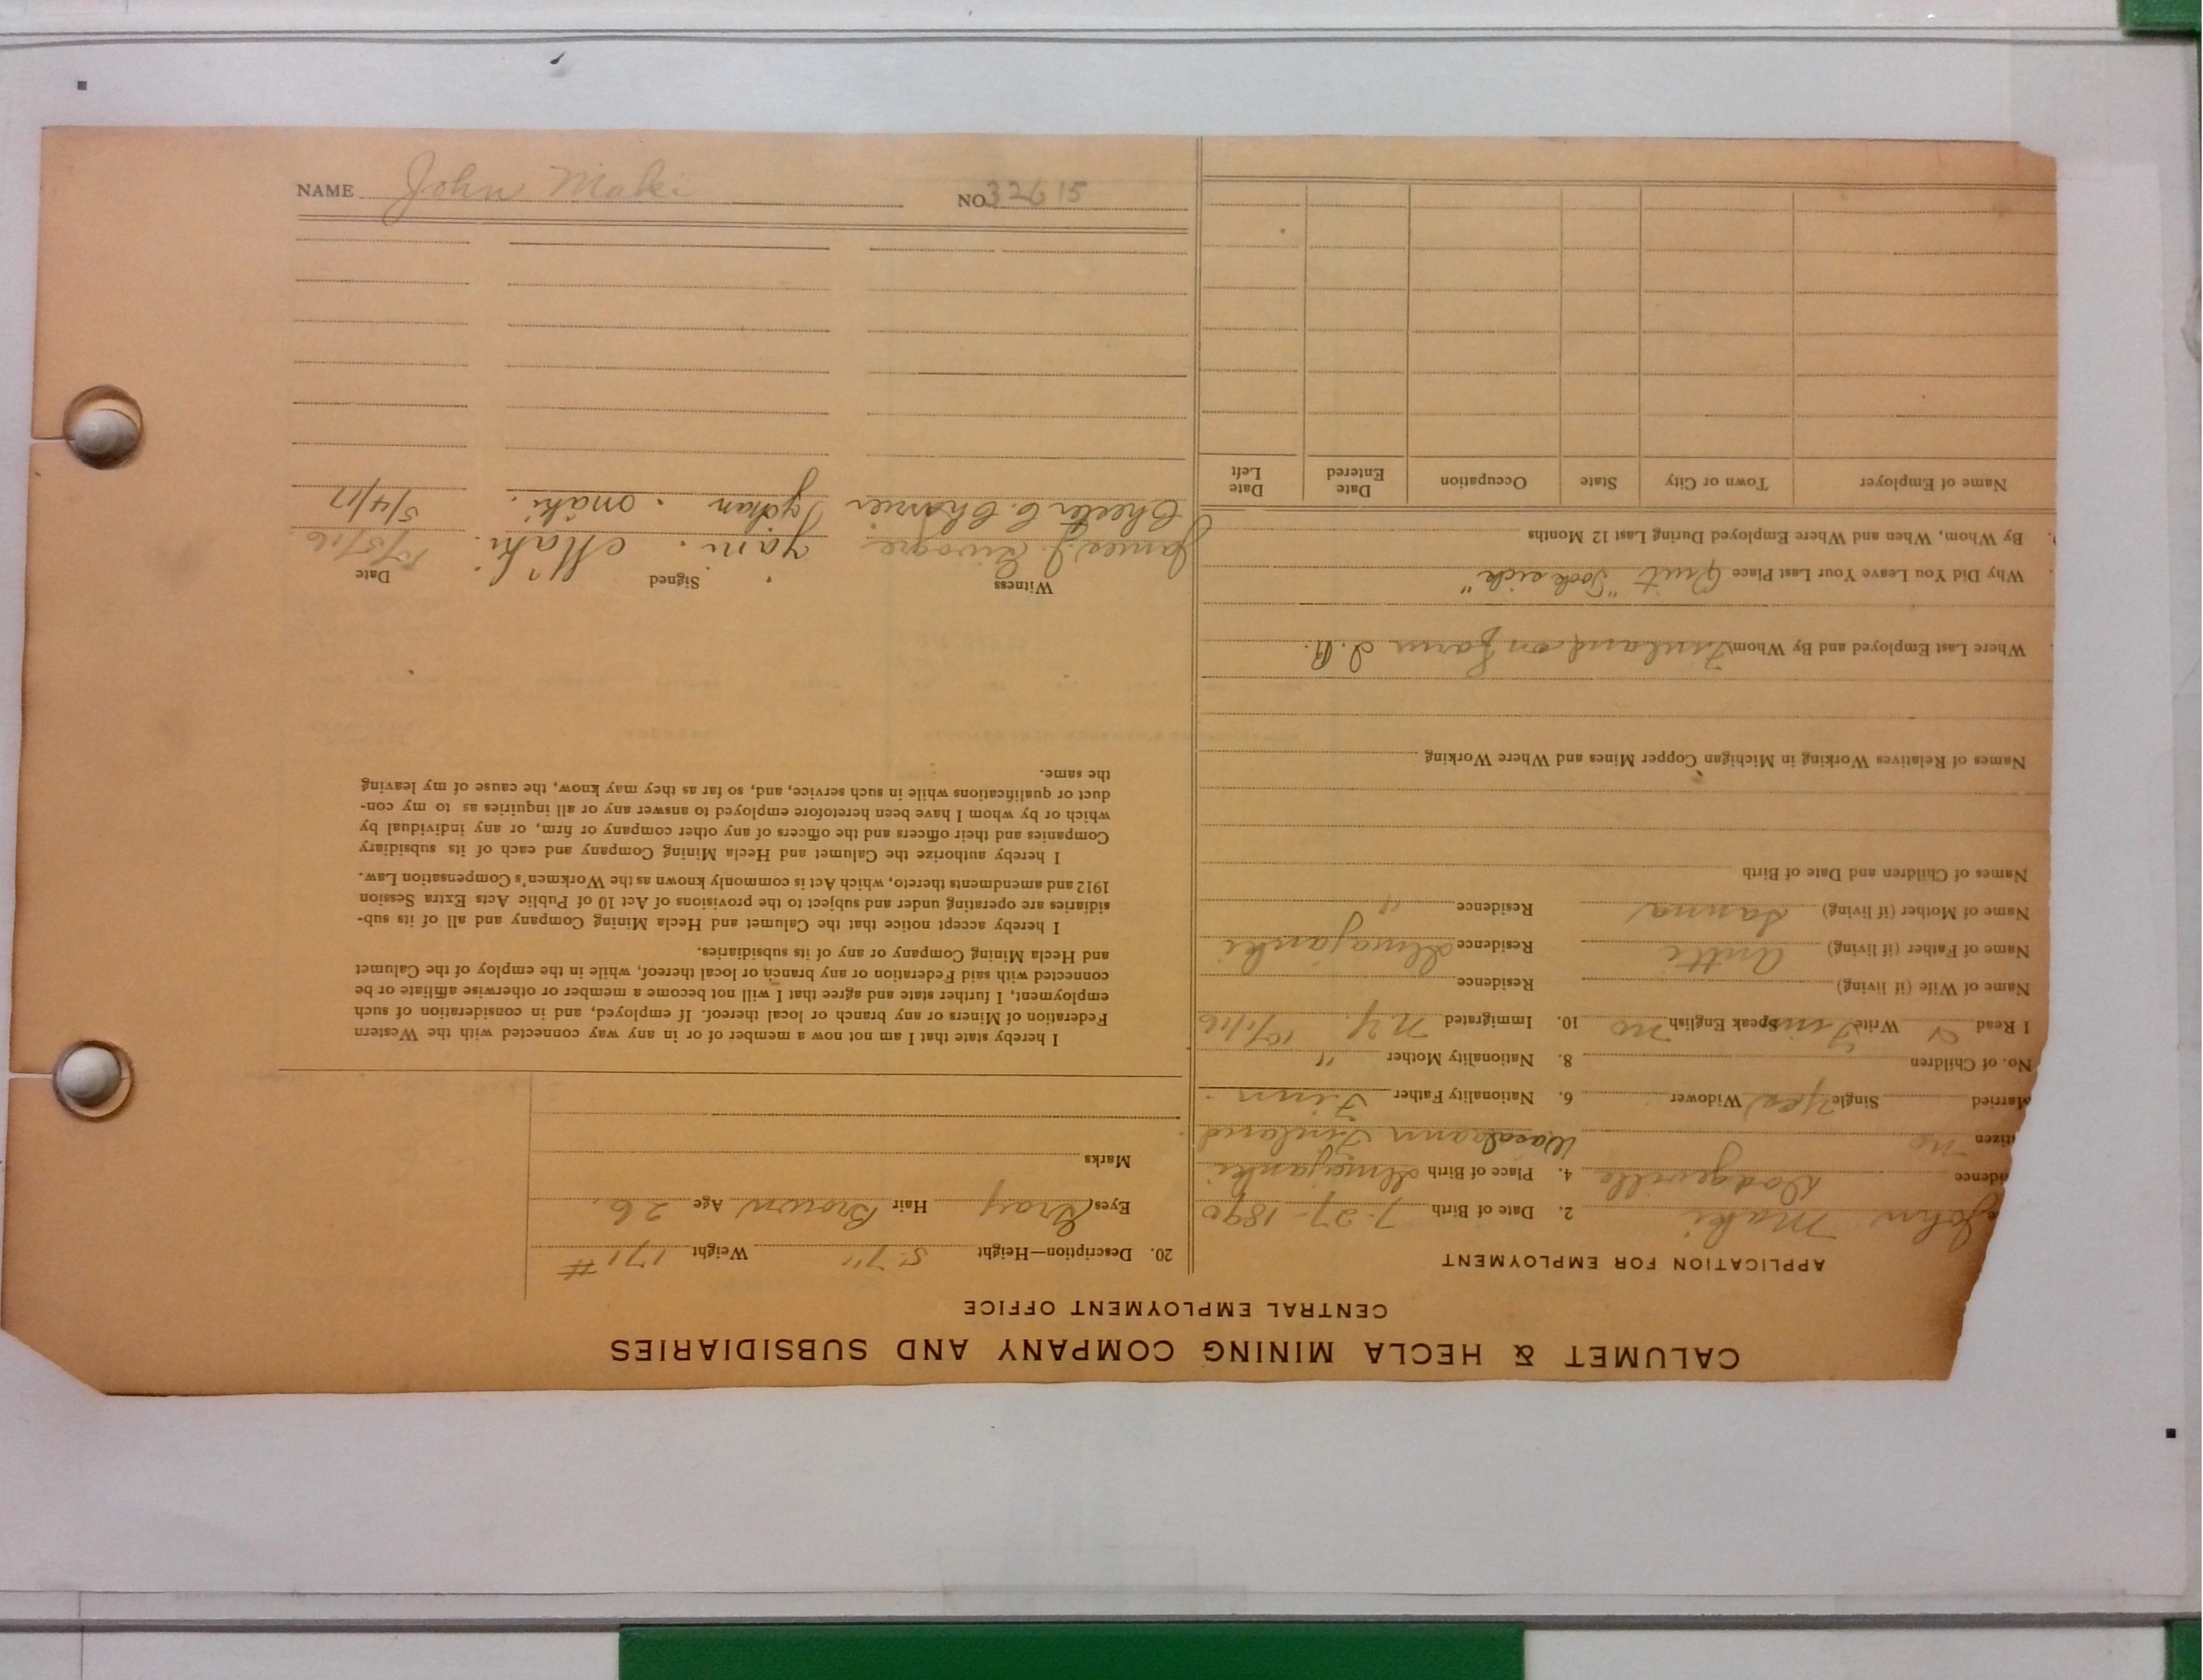 CALUMET & HECLA MINING COMPANY AND SUBSIDIARIES
CENTRAL EMPLOYMENT OFFICE
APPLICATION FOR EMPLOYMENT
e John Maki 2. Date of Birth 7-27-1890
idence Dodgeville 4. Place of Birth Ilmajanki
itizen no Finland
Married Single Yes Widower 6. Nationality Father Finn.
No. of Children 8. Nationality Mother "
I Read Write Finn Speak English no 10. Immigrated N.Y. 10/1/16
Name of Wife (if living) Residence
Name of Father (if living) Antti Residence Ilmajanki
Name of Mother (if living) Sanna Residence "
Names of Children and Date of Birth
Names of Relatives Working in Michigan Copper Mines and Where Working
Where Last Employed and By Whom Finland on farm
Why Did You Leave Your Last Place Quit "Took sick"
By Whom, When and Where Employed During Last 12 Months
Name of Employer Town or City State Occupation Date Entered Date Left
20. Description—Height 5' 7" Weight 171 #
Eyes Gray Hair Brown Age 26.
Marks
I hereby state that I am not now a member of or in any way connected with the Western
Federation of Miners or any branch or local thereof. If employed, and in consideration of such
employment, I further state and agree that I will not become a member or otherwise affiliate or be
connected with said Federation or any branch or local thereof, while in the employ of the Calumet
and Hecla Mining Company or any of its subsidiaries.
I hereby accept notice that the Calumet and Hecla Mining Company and all of its sub-
sidiaries are operating under and subject to the provisions of Act 10 of Public Acts Extra Session
1912 and amendments thereto, which Act is commonly known as the Workmen's Compensation Law.
I hereby authorize the Calumet and Hecla Mining Company and each of its subsidiary
Companies and their officers and the officers of any other company or firm, or any individual by
which or by whom I have been heretofore employed to answer any or all inquiries as to my con-
duct or qualifications while in such service, and, so far as they may know, the cause of my leaving
the same.
Witness Signed Date
James J. Jani. Maki. 10/5/16
Chester C. Johan. maki. 5/4/17
NAME John Maki NO. 32615